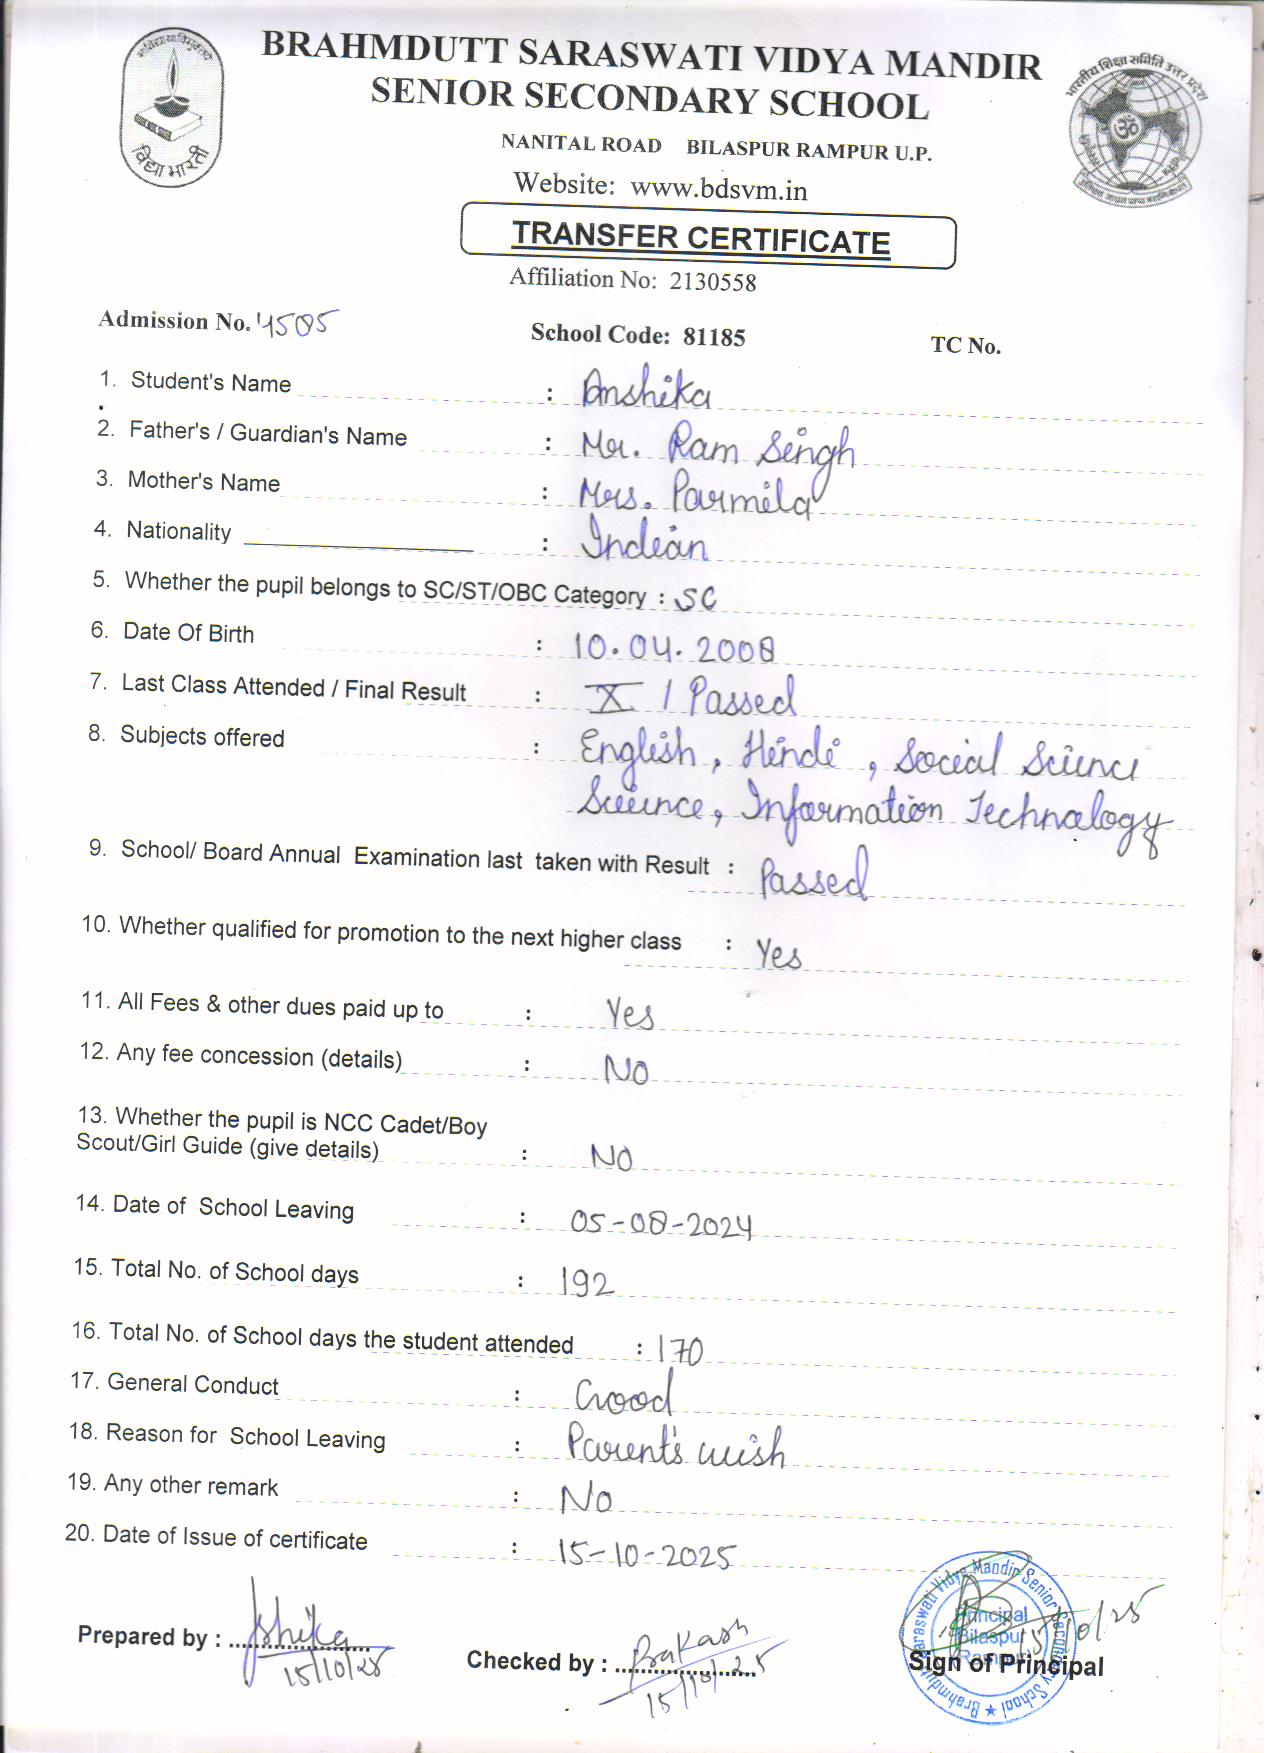 BRAHMDUTT SARASWATI VIDYA MANDIR
SENIOR SECONDARY SCHOOL
NANITAL ROAD BILASPUR RAMPUR U.P.
Website: www.bdsvm.in
विद्या भारती
भारतीय शिक्षा समिति उत्तर प्रदेश
TRANSFER CERTIFICATE
Affiliation No: 2130558
Admission No. 4505 School Code: 81185 TC No.
1. Student's Name : Anshika
2. Father's / Guardian's Name : Mr. Ram Singh
3. Mother's Name : Mrs. Parmila
4. Nationality : Indian
5. Whether the pupil belongs to SC/ST/OBC Category : SC
6. Date Of Birth : 10.04.2008
7. Last Class Attended / Final Result : X / Passed
8. Subjects offered : English, Hindi, Social Scienci
Science, Information Technology
9. School/ Board Annual Examination last taken with Result : Passed
10. Whether qualified for promotion to the next higher class : Yes
11. All Fees & other dues paid up to : Yes
12. Any fee concession (details) : NO
13. Whether the pupil is NCC Cadet/Boy
Scout/Girl Guide (give details) : NO
14. Date of School Leaving : 05-08-2024
15. Total No. of School days : 192
16. Total No. of School days the student attended : 170
17. General Conduct : Good
18. Reason for School Leaving : Parent's wish
19. Any other remark : No
20. Date of Issue of certificate : 15-10-2025
Prepared by : Ishika
15/10/25
Checked by : Prakash
15/10/25
15/10/25
Sign of Principal
Brahmdutt Saraswati Vidya Mandir Senior Secondary School
Principal
Bilaspur
Rampur